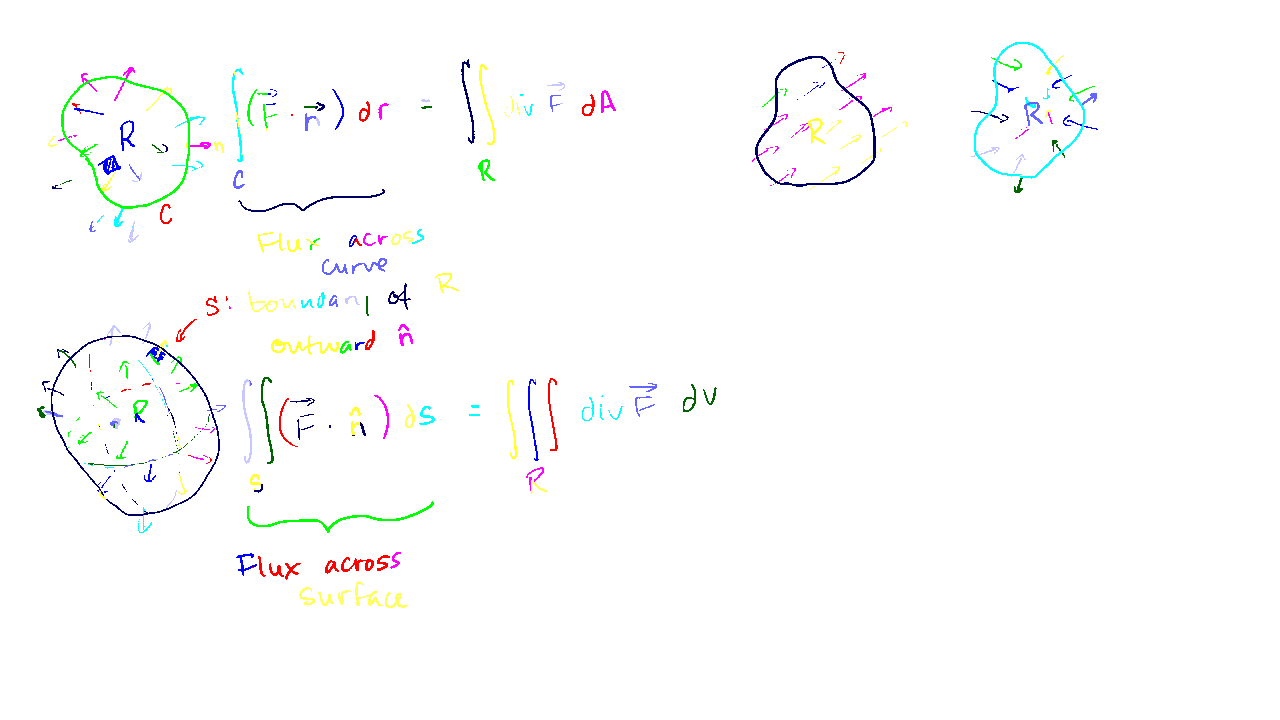 R
n
C
∫_C (F⃗ · n⃗) dr = ∫∫_R div F⃗ dA
Flux across
curve
S: boundary of R
outward n̂
R
∫∫_S (F⃗ · n̂) ds = ∫∫∫_R div F⃗ dv
Flux across
surface
R
R